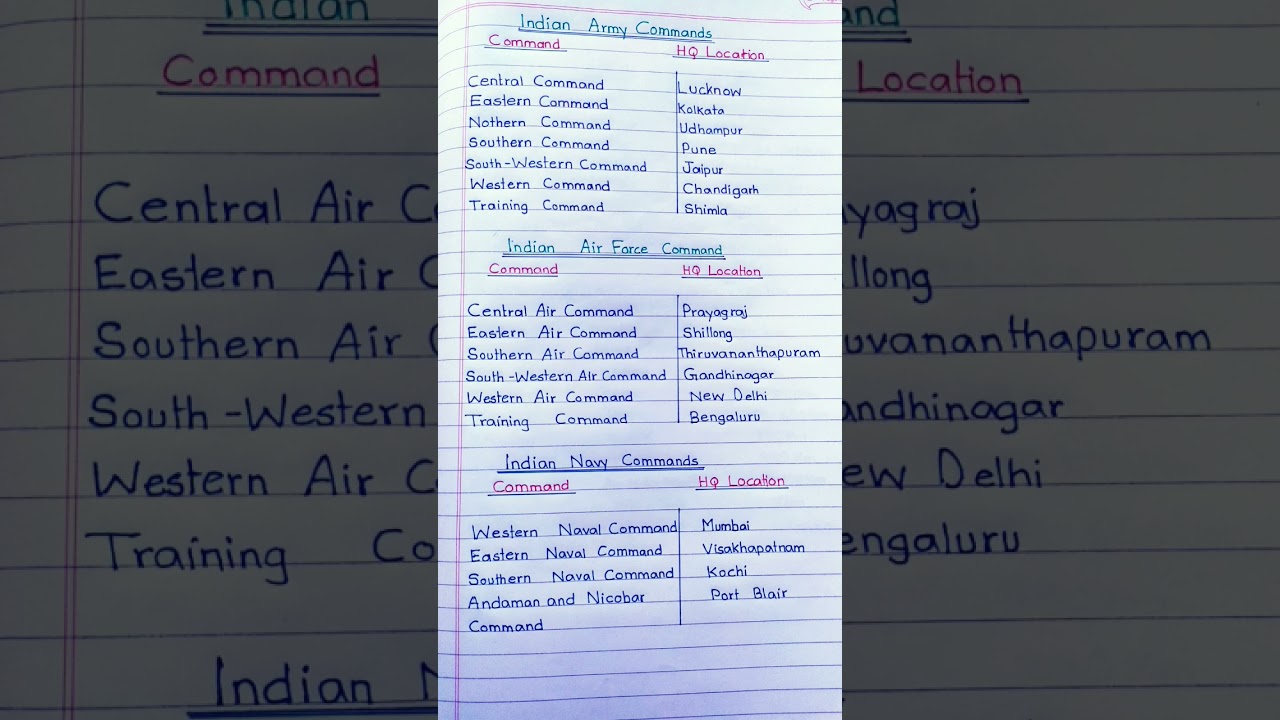 Indian Army Commands
Command HQ Location
Central Command Lucknow
Eastern Command Kolkata
Nothern Command Udhampur
Southern Command Pune
South-Western Command Jaipur
Western Command Chandigarh
Training Command Shimla
Indian Air Force Command
Command HQ Location
Central Air Command Prayagraj
Eastern Air Command Shillong
Southern Air Command Thiruvananthapuram
South-Western Air Command Gandhinagar
Western Air Command New Delhi
Training Command Bengaluru
Indian Navy Commands
Command HQ Location
Western Naval Command Mumbai
Eastern Naval Command Visakhapatnam
Southern Naval Command Kochi
Andaman and Nicobar Port Blair
Command